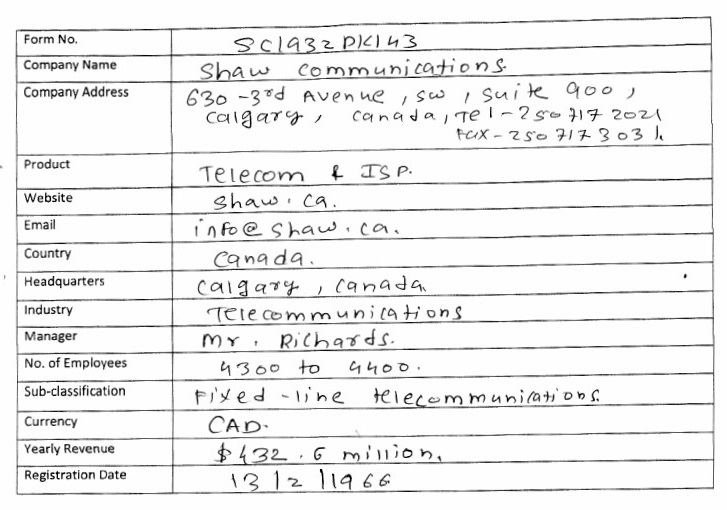 Form No. SC1932DK143
Company Name Shaw communications.
Company Address 630-3rd Avenue, SW, Suite 900,
Calgary, Canada, Tel-250 717 2021
Fax-250 717 3031.
Product Telecom & ISP.
Website Shaw.ca.
Email info@shaw.ca.
Country Canada.
Headquarters Calgary, Canada
Industry Telecommunications
Manager Mr. Richards.
No. of Employees 4300 to 4400.
Sub-classification Fixed-line telecommunications.
Currency CAD.
Yearly Revenue $432.6 million.
Registration Date 13/2/1966